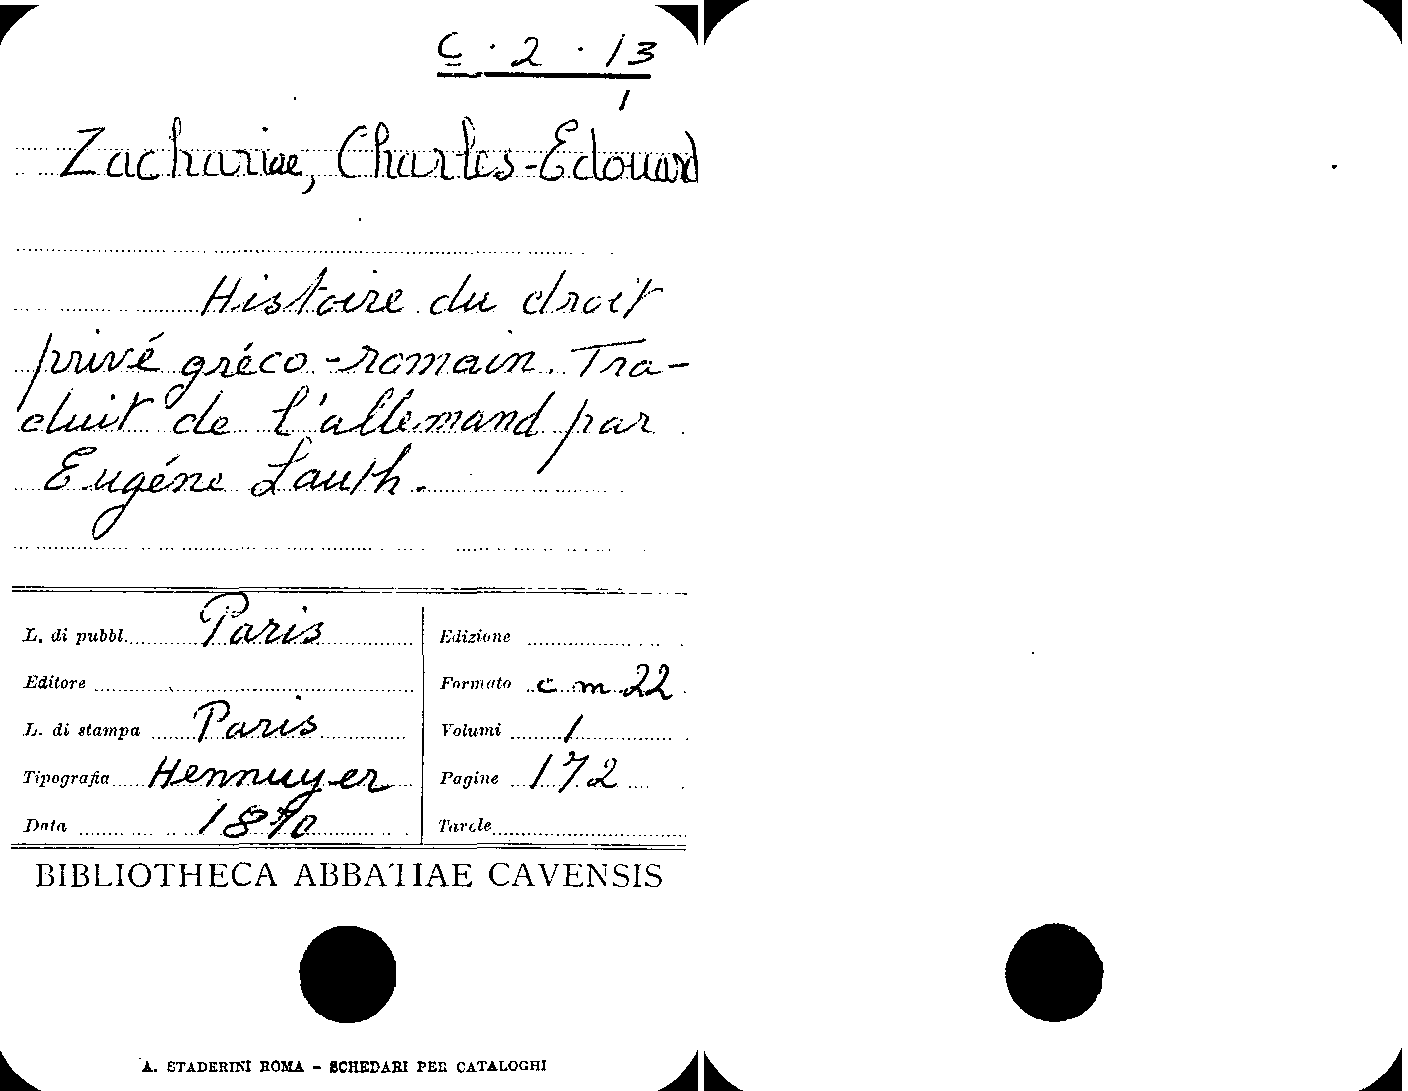 C · 2 · 13
1
Zachariae, Charles-Edouard
Histoire du droit
privé gréco-romain. Tra-
duit de l'allemand par
Eugéne Lauth.
L. di pubbl. Paris
Editore
L. di stampa Paris
Tipografia Hennuyer
Data 1870
Edizione
Formato cm 22
Volumi 1
Pagine 172
Tavole
BIBLIOTHECA ABBATIAE CAVENSIS
A. STADERINI ROMA - SCHEDARI PER CATALOGHI